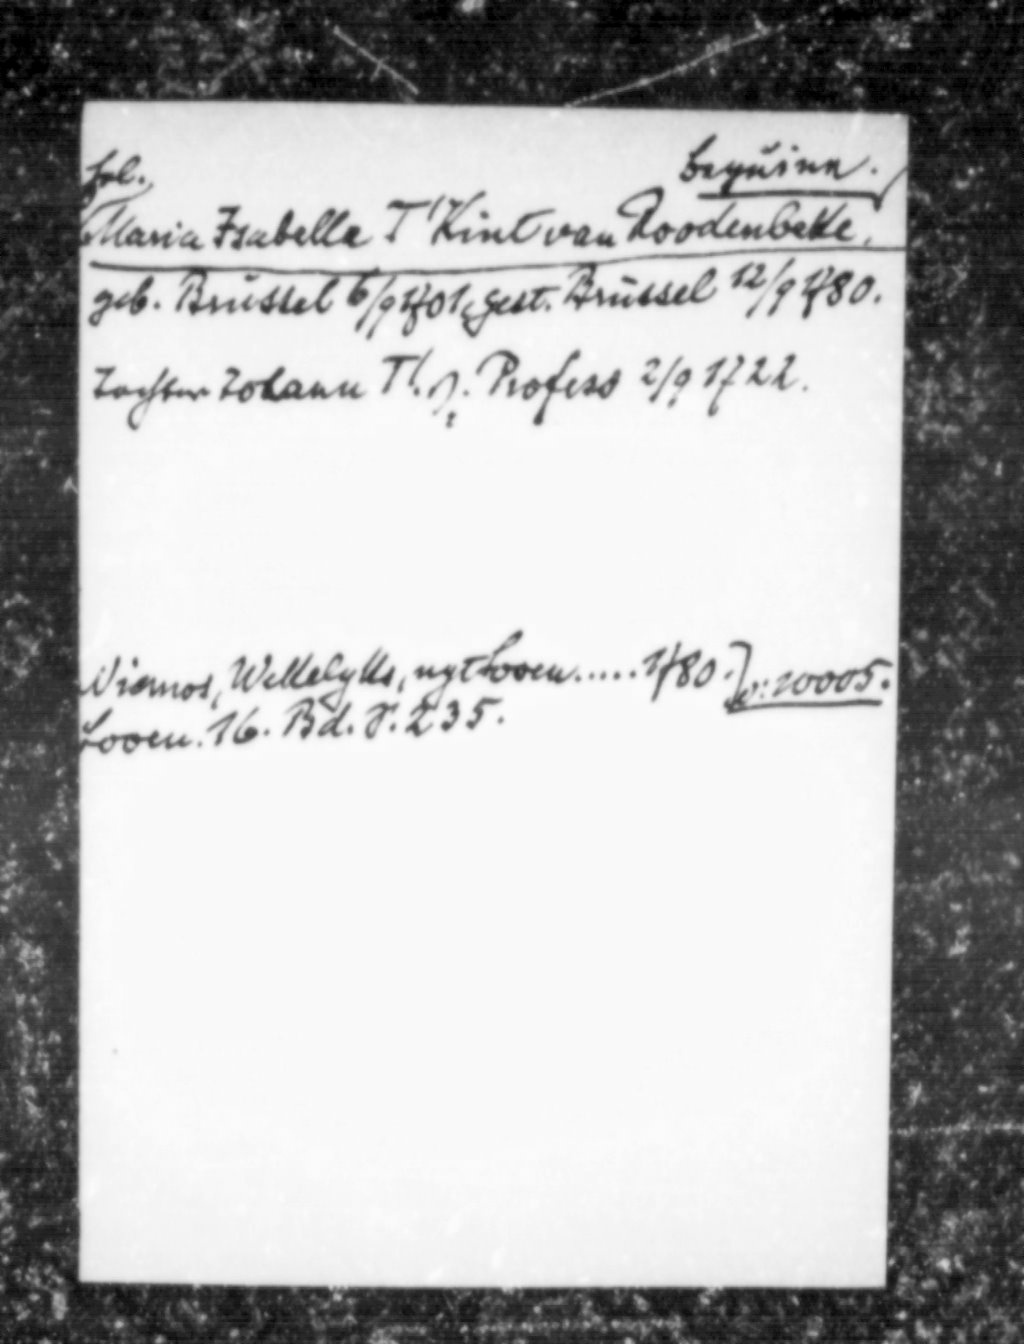 Frl. Beguine.
Maria Isabella T'Kint van Roodenbeke,
geb. Brüssel 6/9 1701, gest. Brüssel 12/9 1780.
Tochter Johann T'. Profess 2/9 1722.
uyt Looven.....1780. 10005.
Looven. 16. Bd. S. 235.